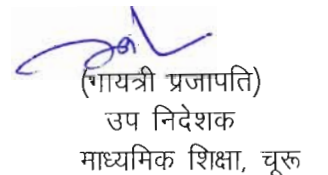 (गायत्री प्रजापति)
उप निदेशक
माध्यमिक शिक्षा, चूरू